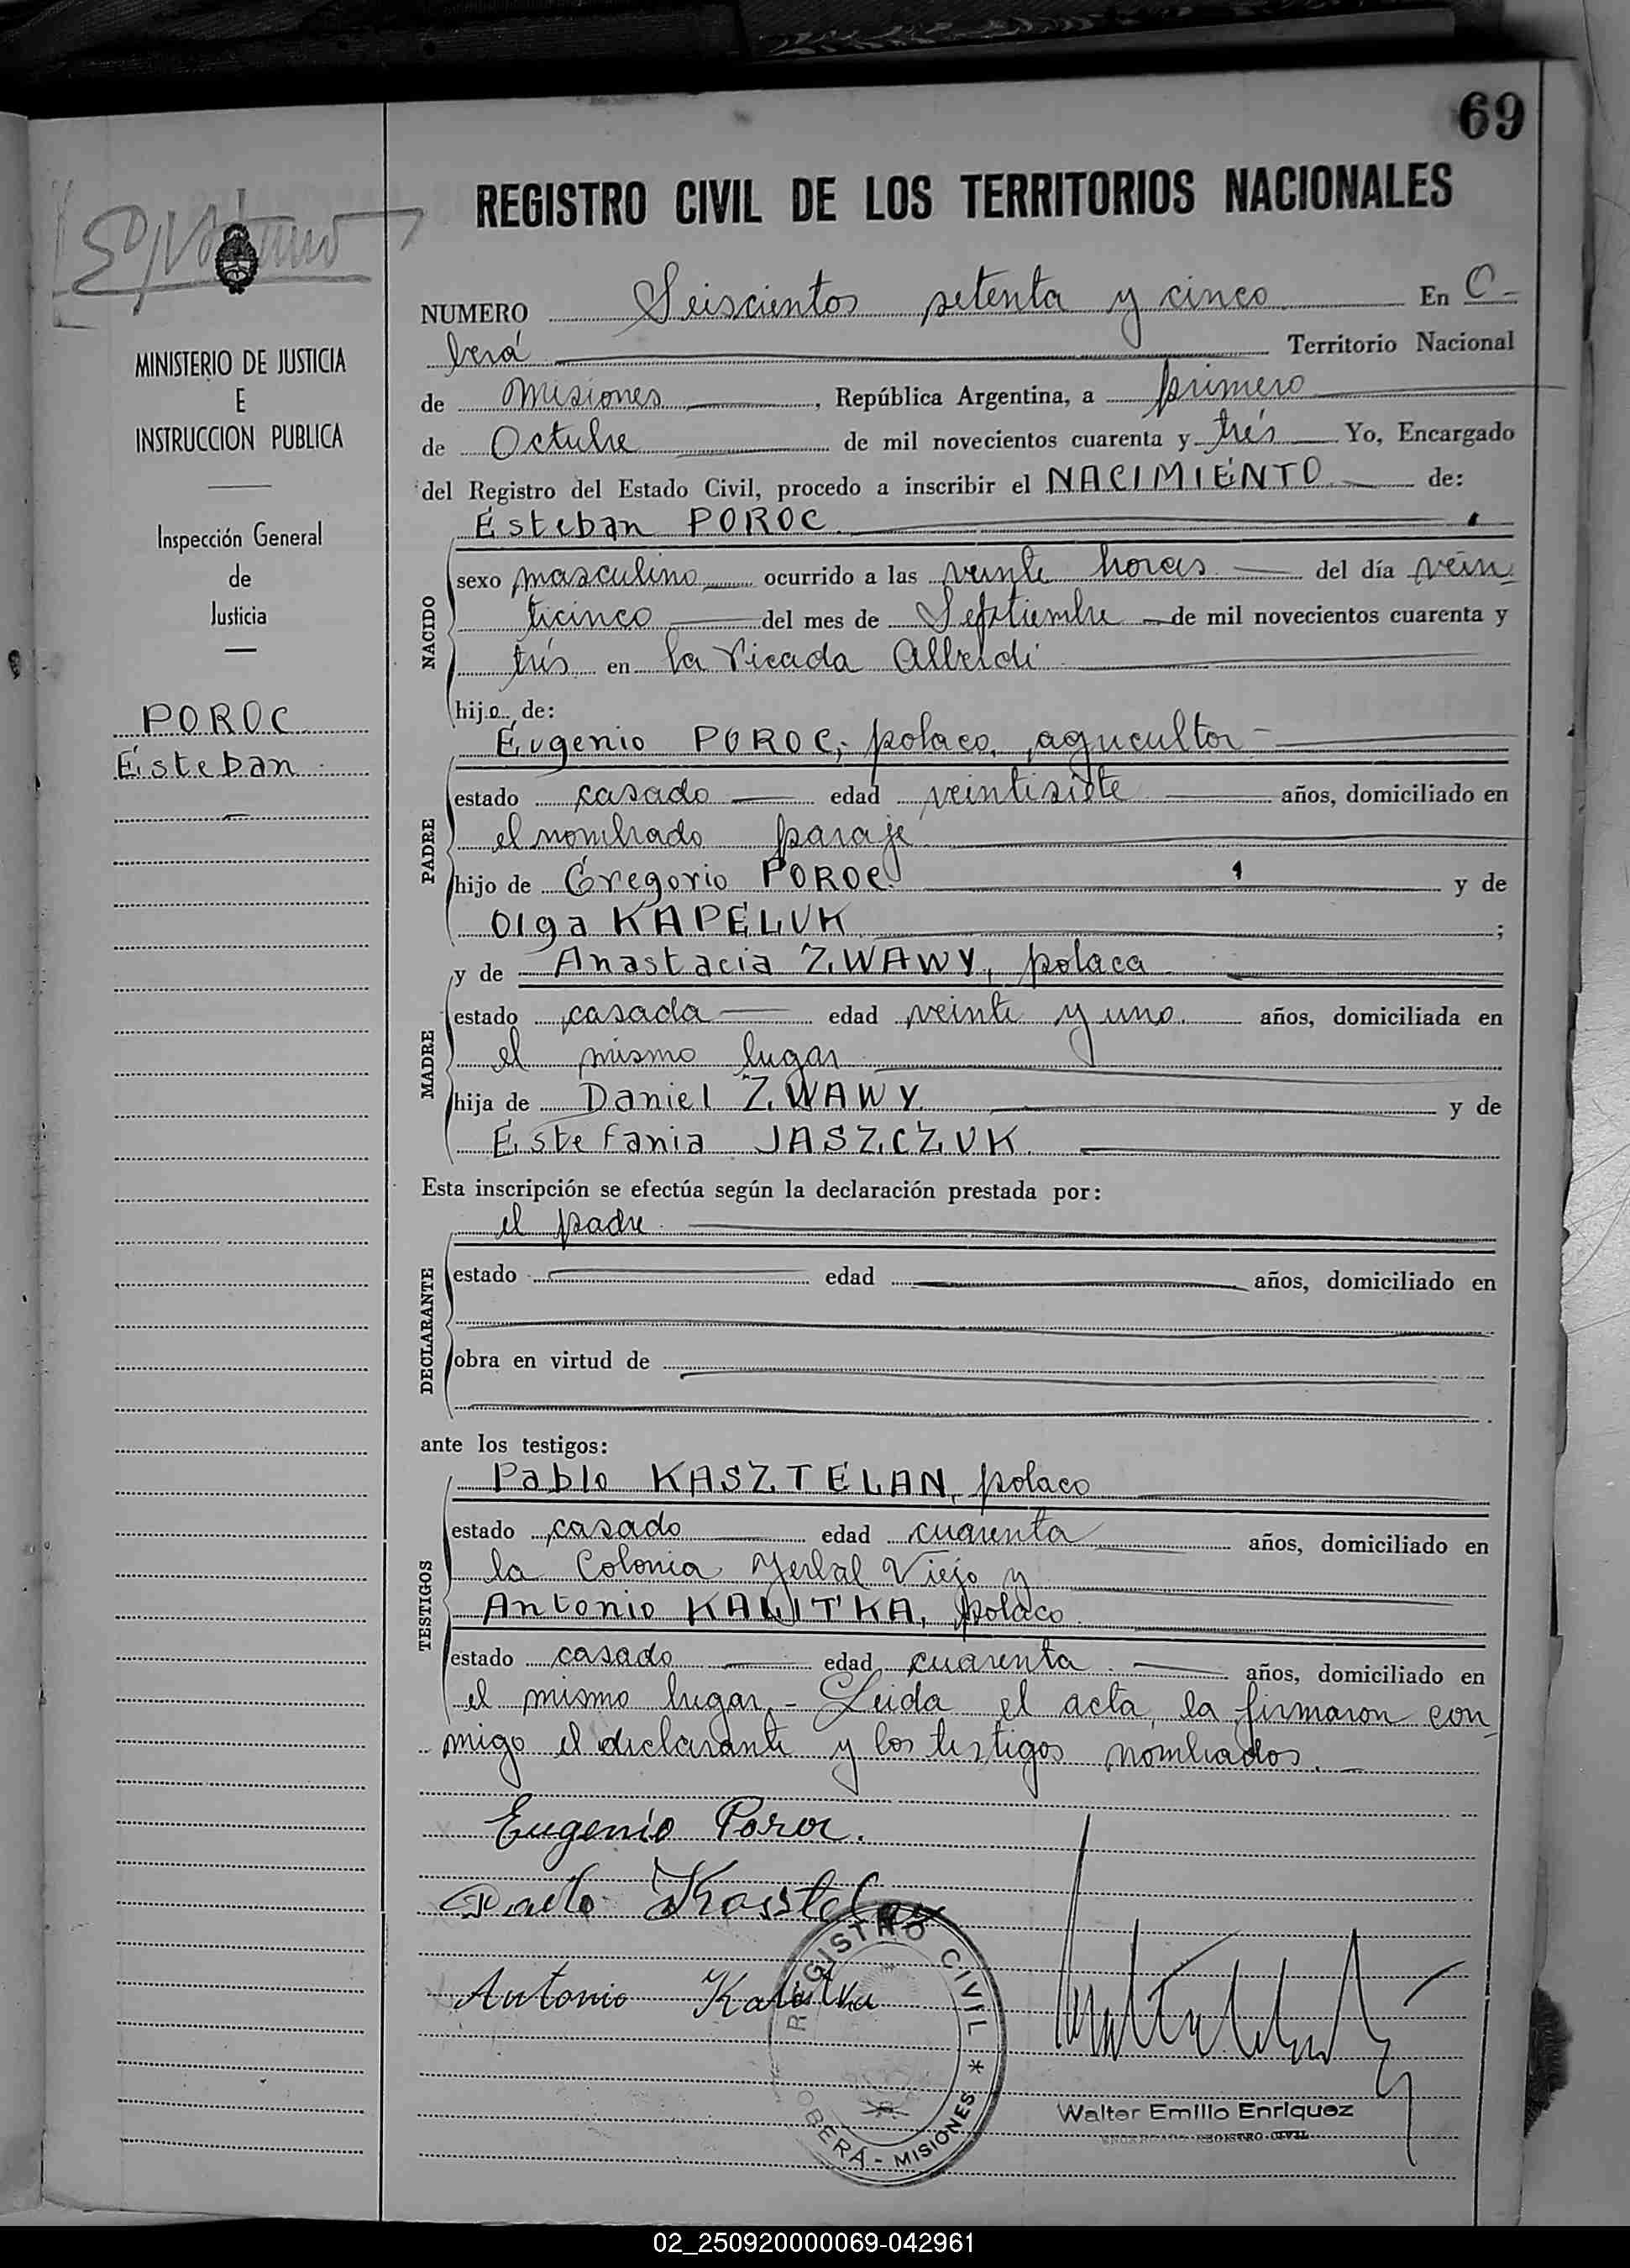 69
REGISTRO CIVIL DE LOS TERRITORIOS NACIONALES
MINISTERIO DE JUSTICIA
E
INSTRUCCION PUBLICA
Inspección General
de
Justicia
POROC
Esteban
NUMERO Seiscientos setenta y cinco En O-
berá Territorio Nacional
de Misiones, República Argentina, a primero
de Octubre de mil novecientos cuarenta y trés Yo, Encargado
del Registro del Estado Civil, procedo a inscribir el NACIMIENTO de:
Esteban POROC
NACIDO
sexo masculino ocurrido a las veinte horas del día vein
ticinco del mes de Septiembre de mil novecientos cuarenta y
trés en la Picada Alberdi
hijo de:
Eugenio POROC, polaco, agricultor
PADRE
estado casado edad veintisiete años, domiciliado en
el nombrado paraje
hijo de Gregorio POROC y de
Olga KAPELUK ;
y de Anastacia ZWAWY, polaca
MADRE
estado casada edad veinte y uno años, domiciliada en
el mismo lugar
hija de Daniel ZWAWY y de
Estefania JASZCZUK
Esta inscripción se efectúa según la declaración prestada por:
el padre
DECLARANTE
estado edad años, domiciliado en
obra en virtud de
ante los testigos:
Pablo KASZTELAN, polaco
TESTIGOS
estado casado edad cuarenta años, domiciliado en
la Colonia Yerbal Viejo y
Antonio KALITKA, polaco
estado casado edad cuarenta años, domiciliado en
el mismo lugar.- Leida el acta, la firmaron con
migo el declarante y los testigos nombrados.-
Eugenio Poroc.
Pablo Kasztelan
Antonio Kalitka
REGISTRO CIVIL * OBERÁ - MISIONES
Walter Emilio Enriquez
ENCARGADO REGISTRO CIVIL
02_250920000069-042961